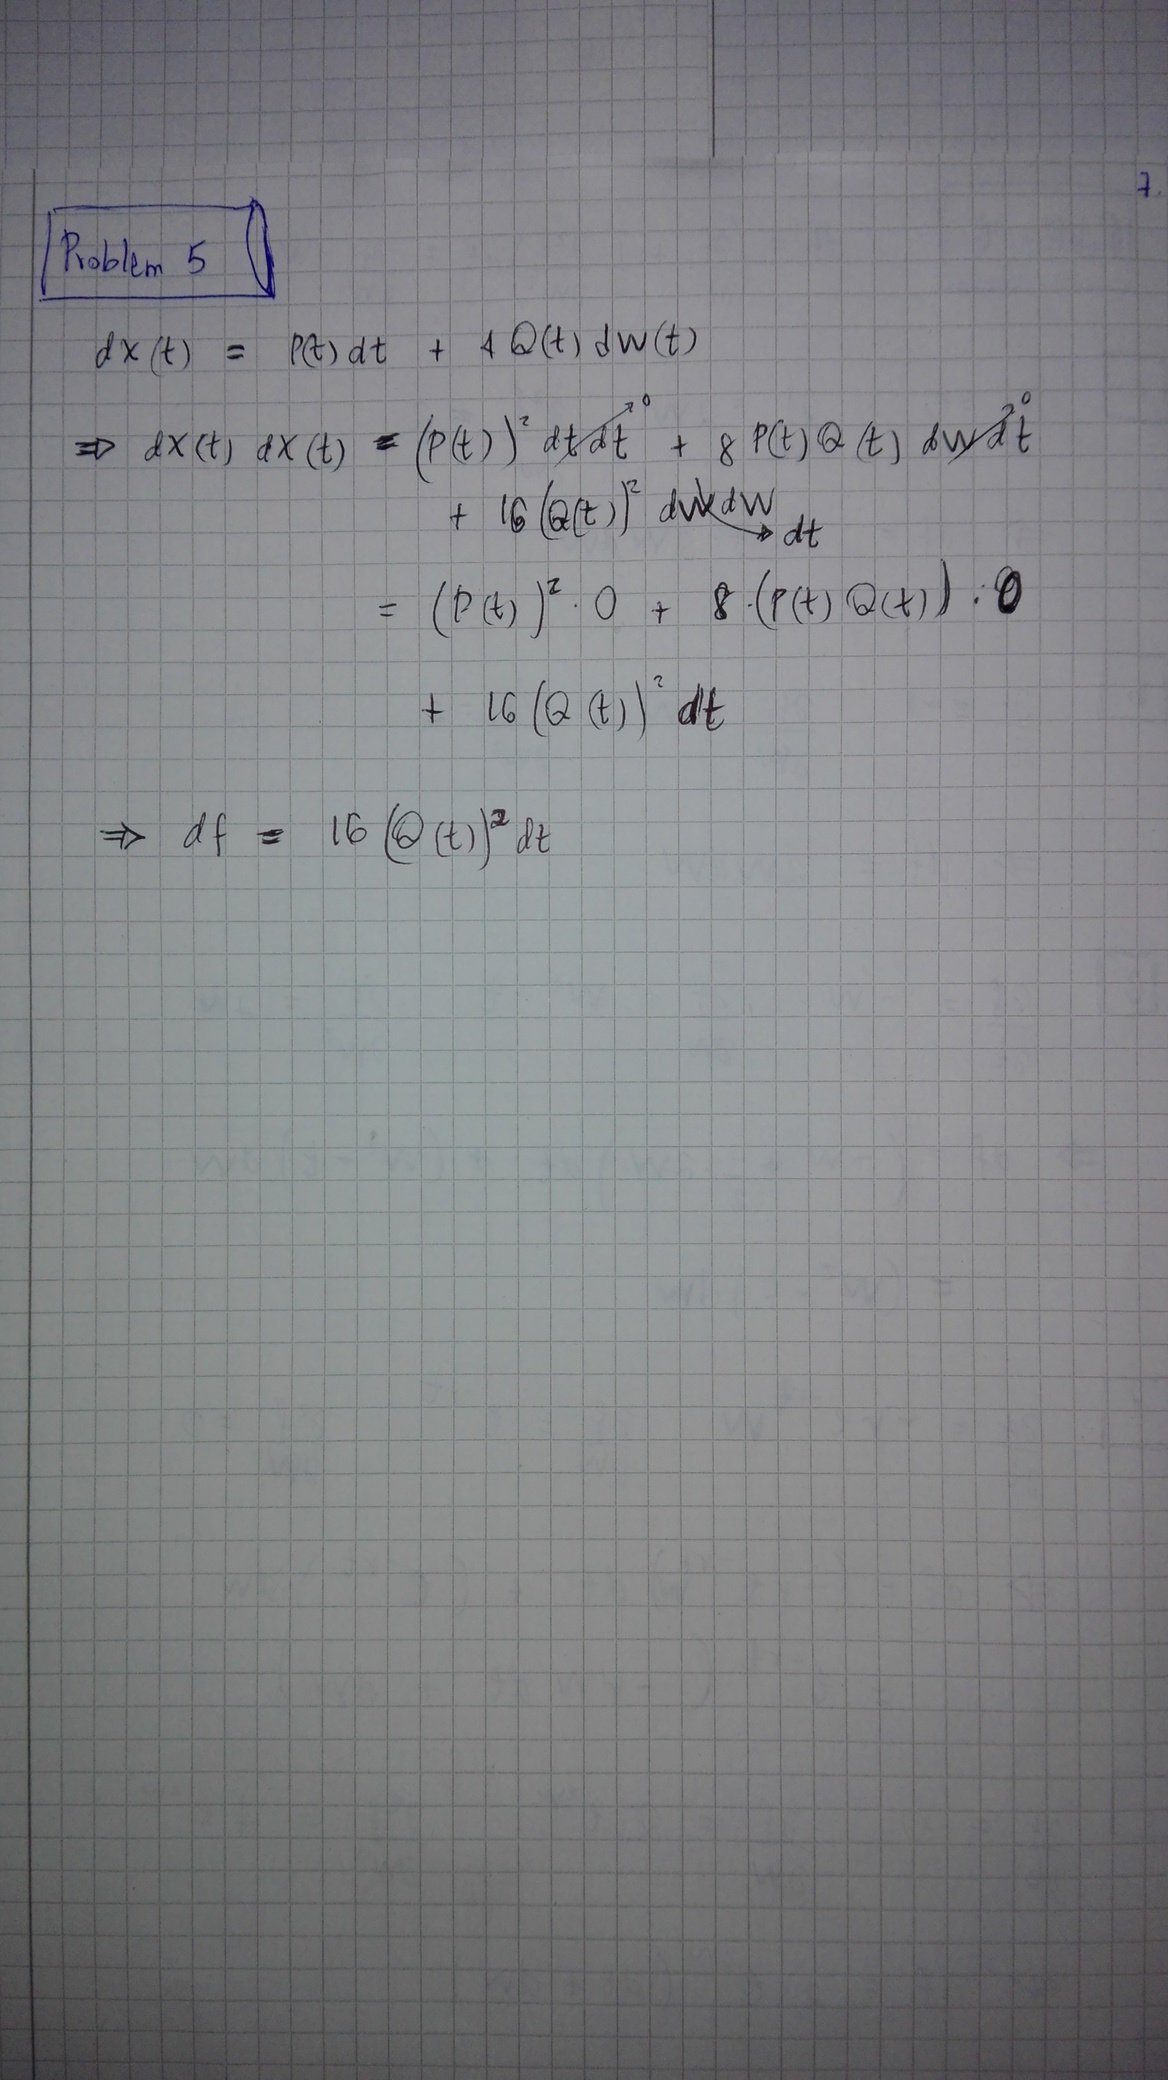 7.
Problem 5
dX(t) = P(t) dt + 4 Q(t) dW(t)
⇒ dX(t) dX(t) = (P(t))² dt dt → 0 + 8 P(t) Q(t) dW dt → 0
+ 16 (Q(t))² dW dW → dt
= (P(t))² · 0 + 8 · (P(t) Q(t)) · 0
+ 16 (Q(t))² dt
⇒ df = 16 (Q(t))² dt